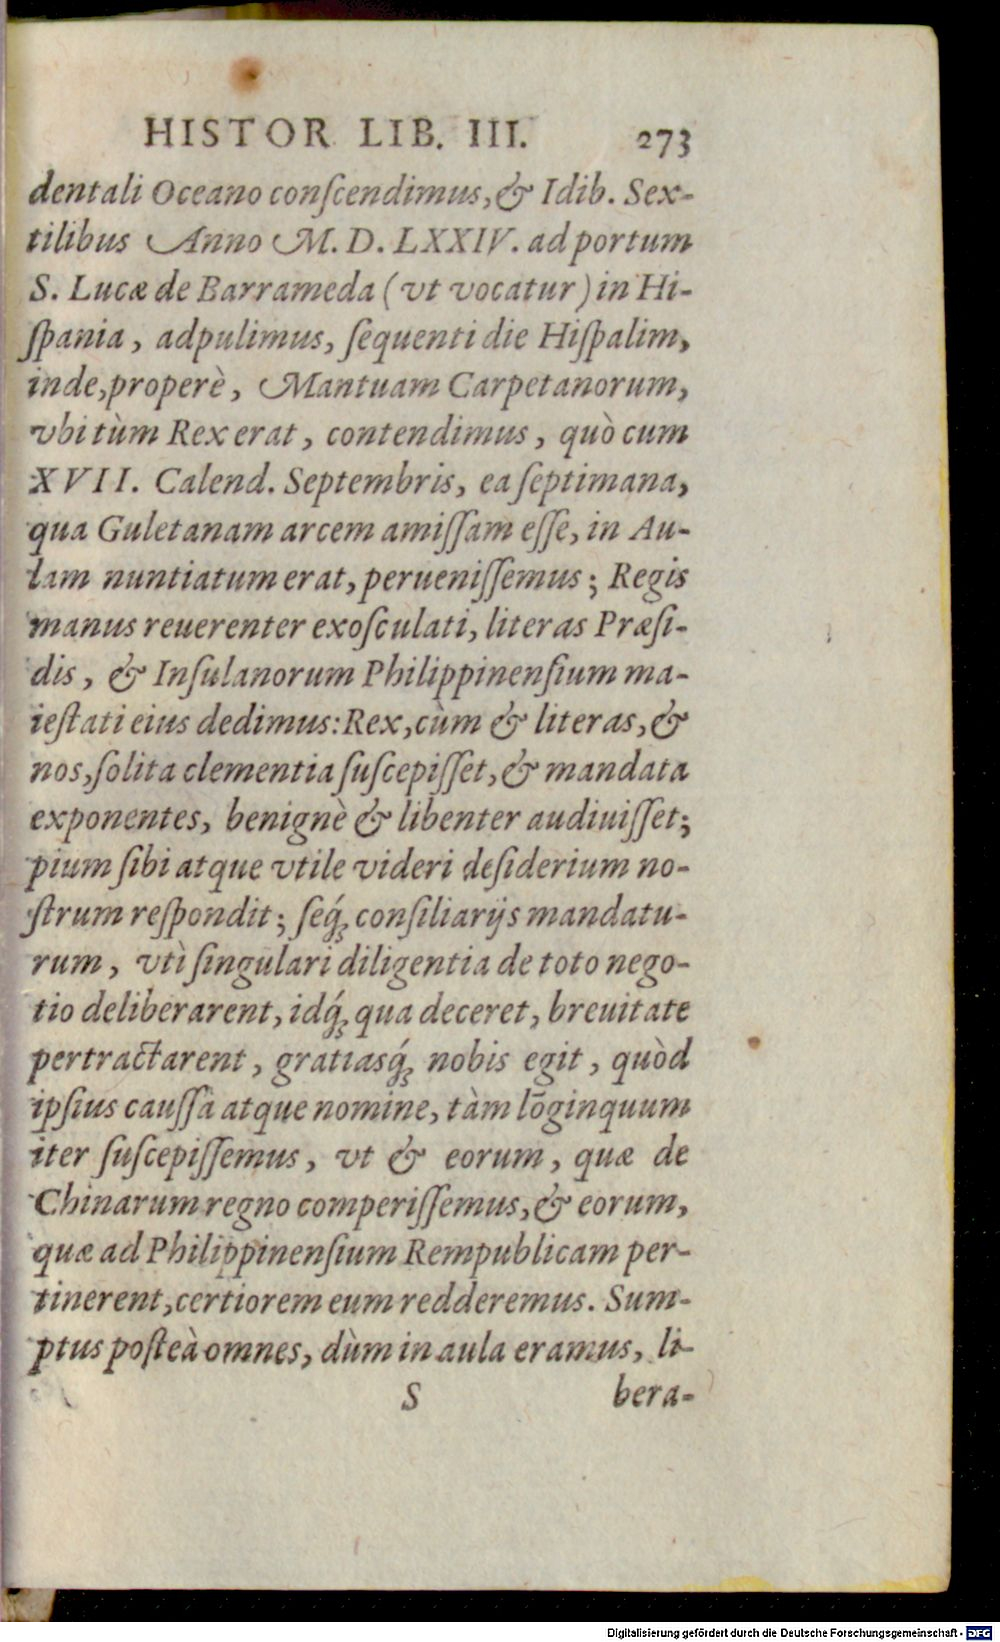 HISTOR LIB. III. 273
dentali Oceano conſcendimus, & Idib. Sex-
tilibus Anno M. D. LXXIV. ad portum
S. Lucæ de Barrameda ( vt vocatur ) in Hi-
ſpania, adpulimus, ſequenti die Hiſpalim,
inde, properè, Mantuam Carpetanorum,
vbi tùm Rex erat, contendimus, quò cum
XVII. Calend. Septembris, ea ſeptimana,
qua Guletanam arcem amiſſam eſſe, in Au-
lam nuntiatum erat, perueniſſemus; Regis
manus reuerenter exoſculati, literas Præſi-
dis, & Inſulanorum Philippinenſium ma-
ieſtati eius dedimus: Rex, cùm & literas, &
nos, ſolita clementia ſuſcepiſſet, & mandata
exponentes, benignè & libenter audiuiſſet;
pium ſibi atque vtile videri deſiderium no-
ſtrum reſpondit; ſeq́ꝫ conſiliarijs mandatu-
rum, vtì ſingulari diligentia de toto nego-
tio deliberarent, idq́ꝫ qua deceret, breuitate
pertractarent, gratiasq́ꝫ nobis egit, quòd
ipſius cauſſa atque nomine, tàm lōginquum
iter ſuſcepiſſemus, vt & eorum, quæ de
Chinarum regno comperiſſemus, & eorum,
quæ ad Philippinenſium Rempublicam per-
tinerent, certiorem eum redderemus. Sum-
ptus poſteà omnes, dùm in aula eramus, li-
S bera-
Digitalisierung gefördert durch die Deutsche Forschungsgemeinschaft - DFG